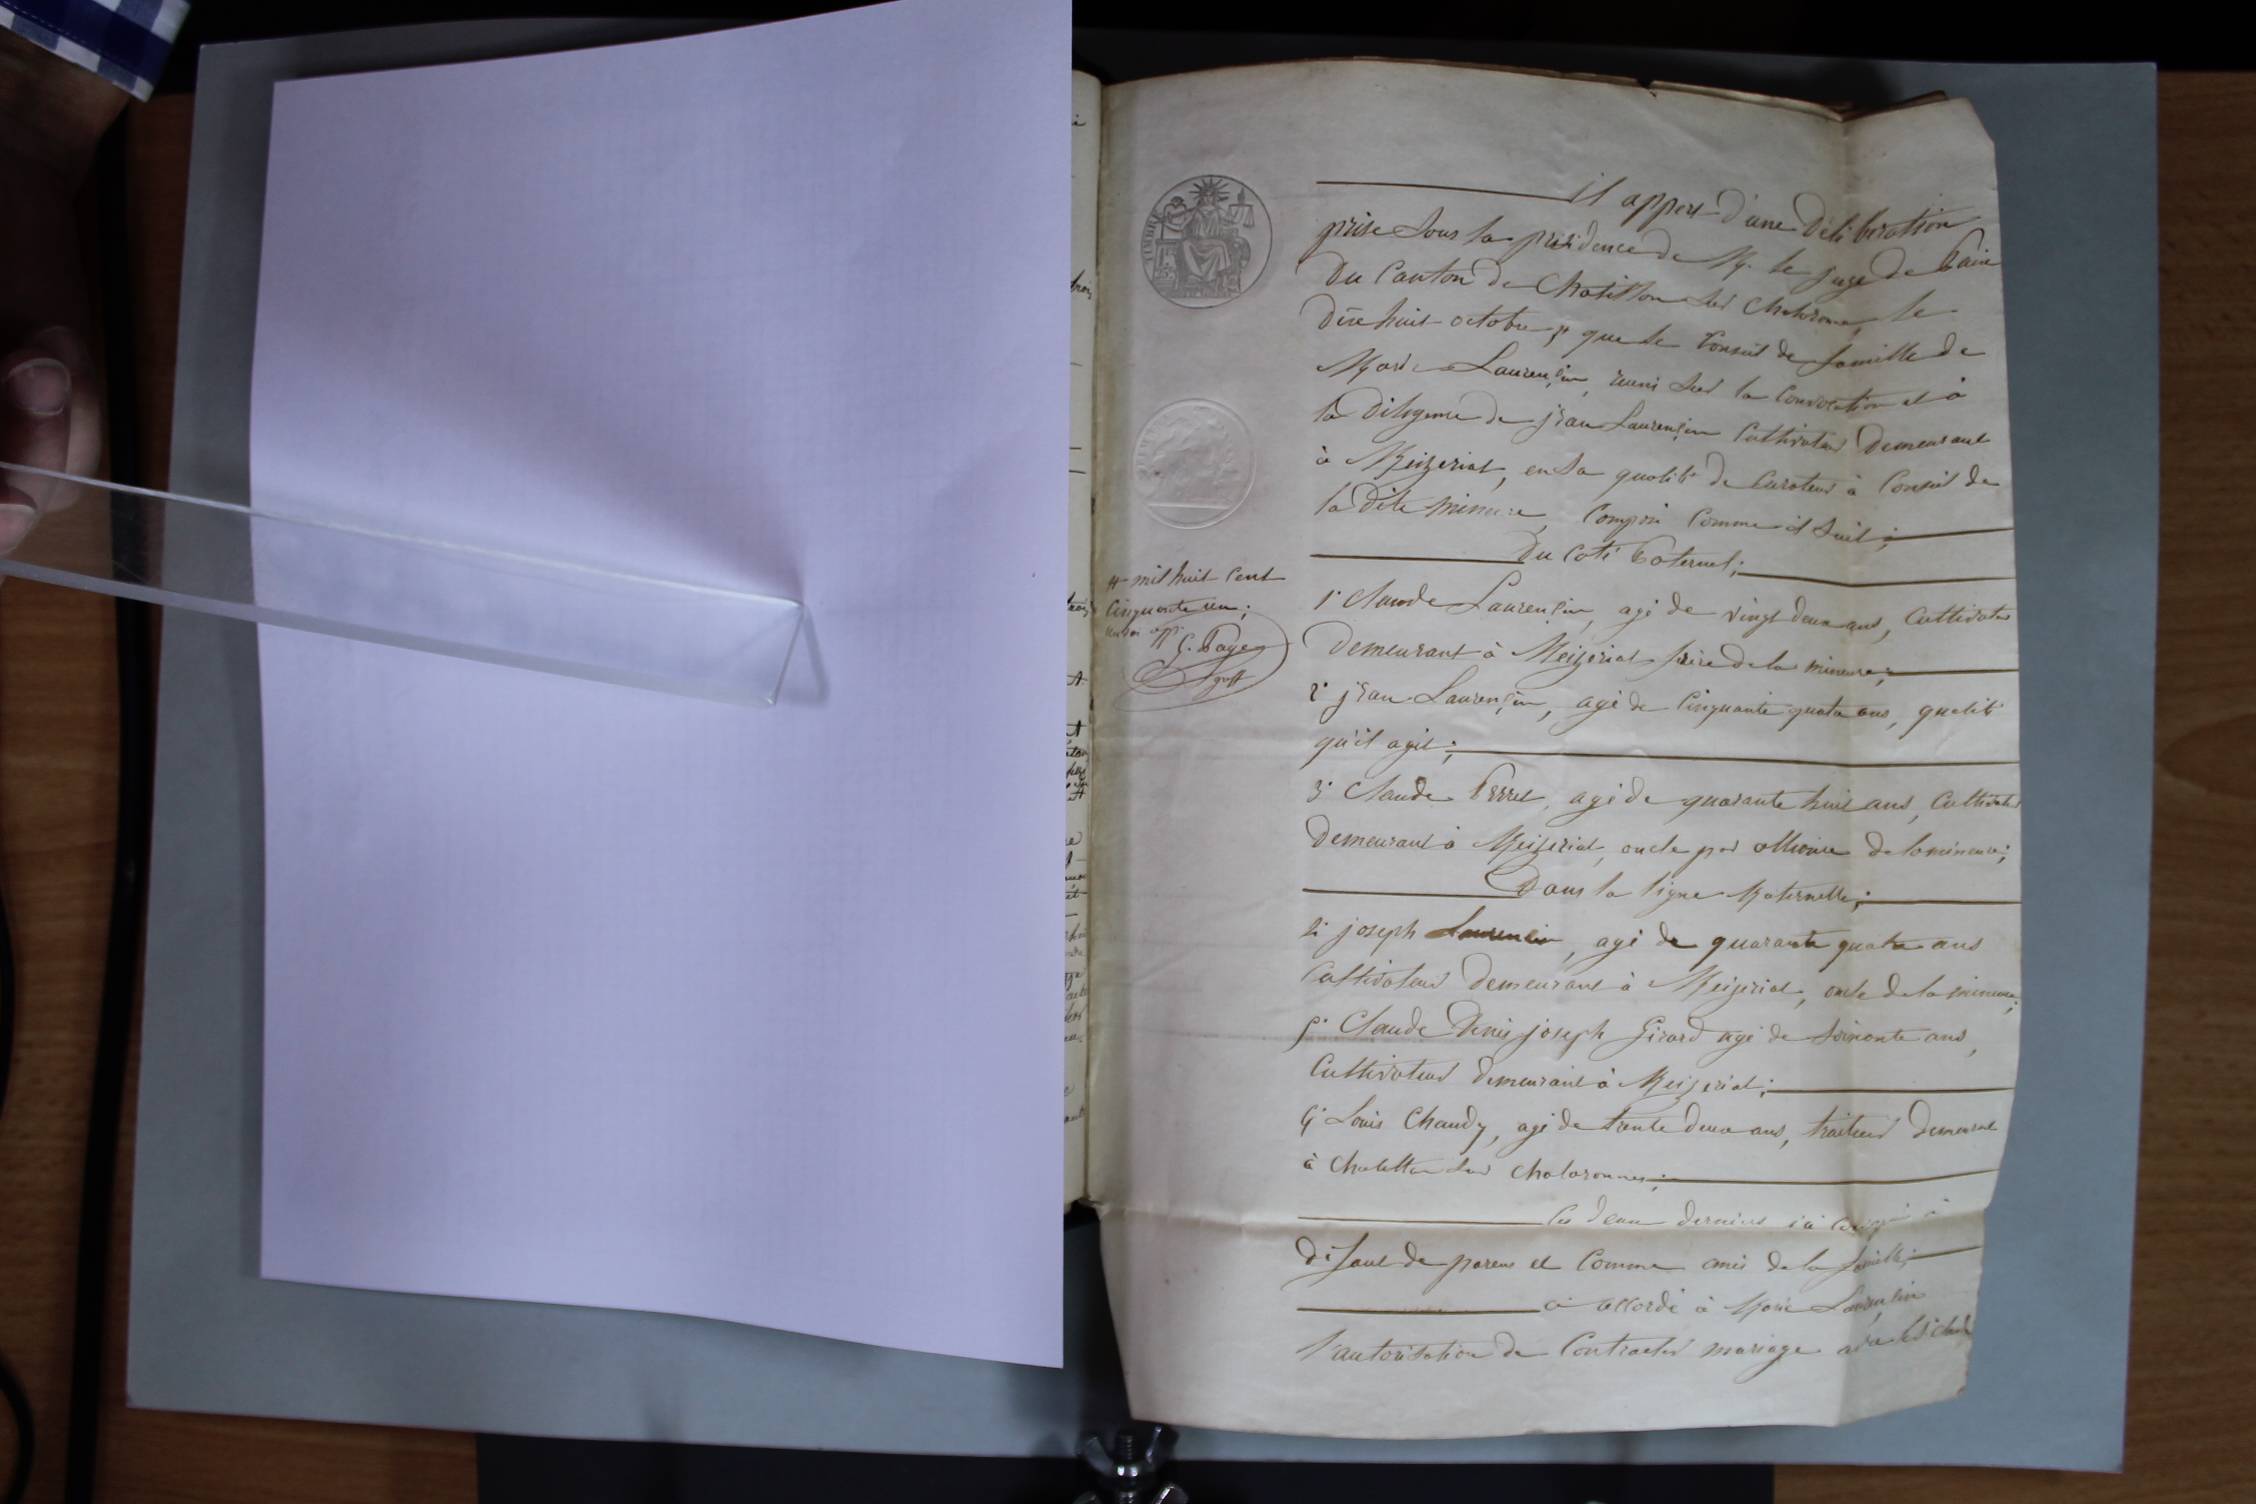 TIMBRE
il appert d'une Délibération
prise sous la présidence de M. le juge de Paix
Du Canton de Chatillon sur Chalaronne, le
Dix huit octobre, # que le Conseil de famille de
Marie Laurençin, réuni sur la Convocation et à
la Diligence de jean Laurençin Cultivateur Demeurant
à Meizeriat, en sa qualité de Curateur à Conseil de
la Dite mineure, Composé Comme il Suit;
Du Coté Paternel;
1° Claude Laurençin, agé de vingt deux ans, Cultivateur
Demeurant à Meizeriat frère de la mineure;
2° jean Laurençin, agé de Cinquante quatre ans, qualité
qu'il agit;
3° Claude Perret, agé de quarante huit ans, Cultivateur
Demeurant à Meizeriat, oncle par alliance de la mineure;
Dans la ligne Maternelle;
joseph Laurençin, agé de quarante quatre ans
Cultivateur Demeurant à Meizeriat, oncle de la mineure;
5° Claude Denis joseph Girard agé de soixante ans,
Cultivateur Demeurant à Meizeriat;
6° Louis Chaudy, agé de trente deux ans, traiteur Demeurant
à Chatillon sur Chalaronne;
Ces Deux derniers à
Défaut de parens et Comme amis de la famille;
a accordé à Marie Laurençin
l'autorisation de Contracter mariage avec
# mil huit Cent
Cinquante un;
G. Page